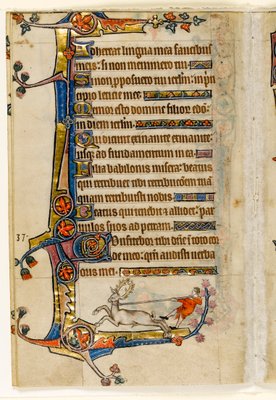 Adhereat lingua mea faucibus
meis: si non meminero tui.
Si non pposuero ierlm: in prin
cipio leticie mee.
Memor esto domine filior edom:
in diem ierlm.
Qui dicunt exinanite exinanite:
usq; ad fundamentum in ea.
Filia babilonis misera: beatus
qui retribuet tibi retribucoem
quam retribuisti nobis.
Beatus qui tenebit et allidet: par
uulos suos ad petram.
37
Confitebor tibi dne in toto cor
de meo: qm audisti uerba
oris mei.